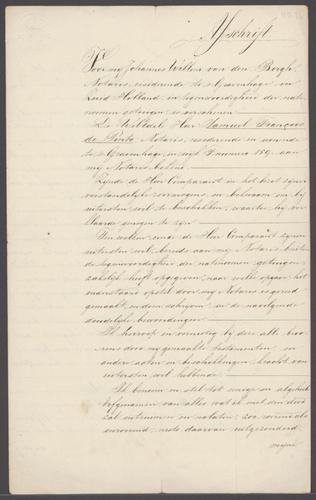 Afschrift.
Voor mij Johannes Willem van den Bergh,
Notaris, resideerende te 's Gravenhage in
Zuid Holland, in tegenwoordigheid der nate-
noemen getuigen, is verschenen
De WelEdele Heer Samuel François
de Pinto, Notaris, resideerende en wonende
te 's Gravenhage, in wijk nummer 159, aan
mij Notaris bekend.
Zijnde de Heer Comparant in het bezit zijner
verstandelijke vermogens en bekwaam om bij
uitersten wil te beschikken,
klaarde
Heer Comparant zijnen
uitersten wil, aan mij Notaris buiten
de tegenwoordigheid der natenoemen getuigen,
zakelijk heeft opgegeven, naar welke opgave het
opstel door mij Notaris is gereed
gemaakt, en doen schrijven, in de navolgende
duidelijke bewoordingen
Ik herroep en vernietig bij deze alle bevo-
rens door mij gemaakte testamenten, en
andere acten en beschikkingen, kracht van
uitersten wil hebbende.
Ik benoem en stel tot eenige en algeheele
erfgenamen van alles wat ik met den dood
zal ontruimen en nalaten, zoo roerend als
onroerend, niets daarvan uitgezonderd,
mijne